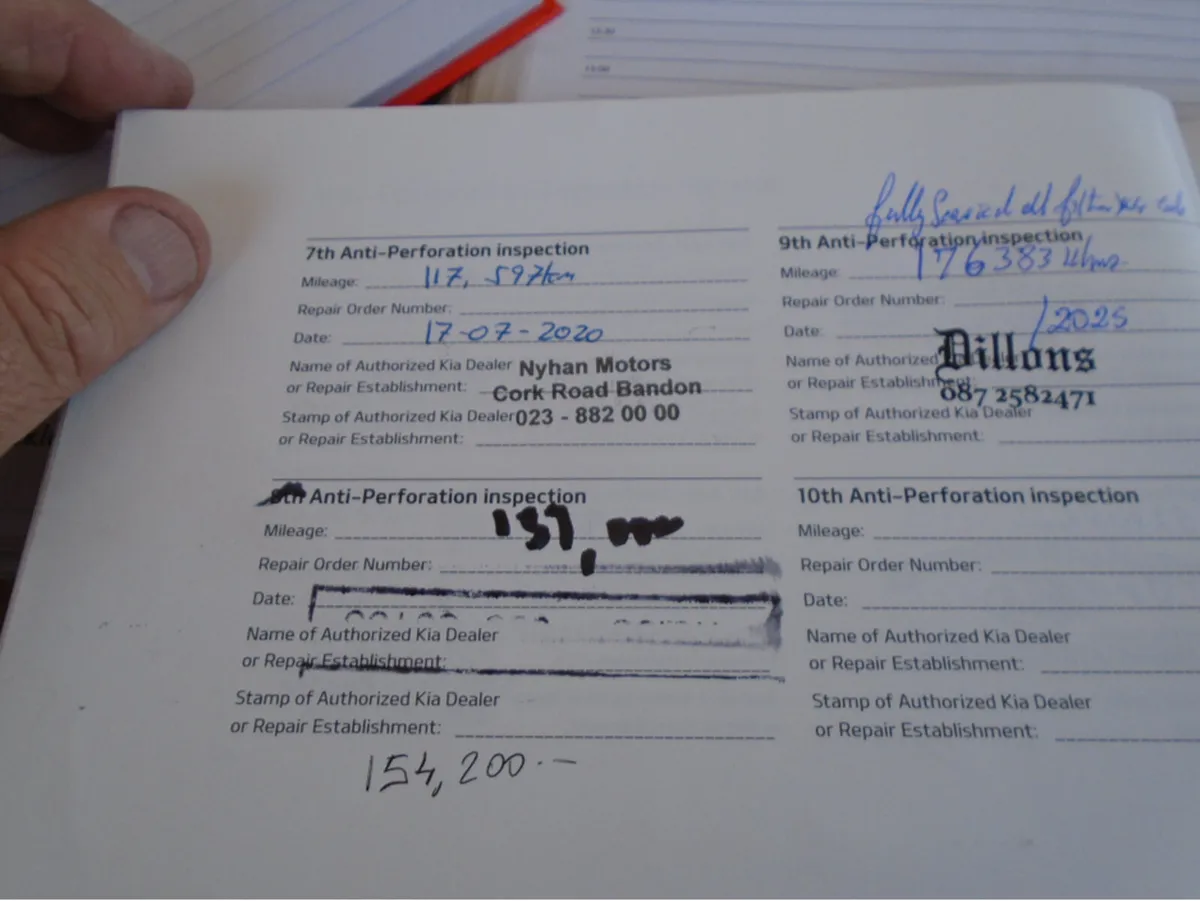 fully Serviced all
7th Anti-Perforation inspection
Mileage: 117, 597km
Repair Order Number:
Date: 17-07-2020
Name of Authorized Kia Dealer Nyhan Motors
or Repair Establishment: Cork Road Bandon
Stamp of Authorized Kia Dealer 023 - 882 00 00
or Repair Establishment:
8th Anti-Perforation inspection
Mileage: 137,
Repair Order Number:
Date:
Name of Authorized Kia Dealer
or Repair Establishment:
Stamp of Authorized Kia Dealer
or Repair Establishment:
154, 200.-
9th Anti-Perforation inspection
Mileage: 176383
Repair Order Number:
Date: /2025
Name of Authorized Kia Dealer Dillons
or Repair Establishment: 087 2582471
Stamp of Authorized Kia Dealer
or Repair Establishment:
10th Anti-Perforation inspection
Mileage:
Repair Order Number:
Date:
Name of Authorized Kia Dealer
or Repair Establishment:
Stamp of Authorized Kia Dealer
or Repair Establishment: